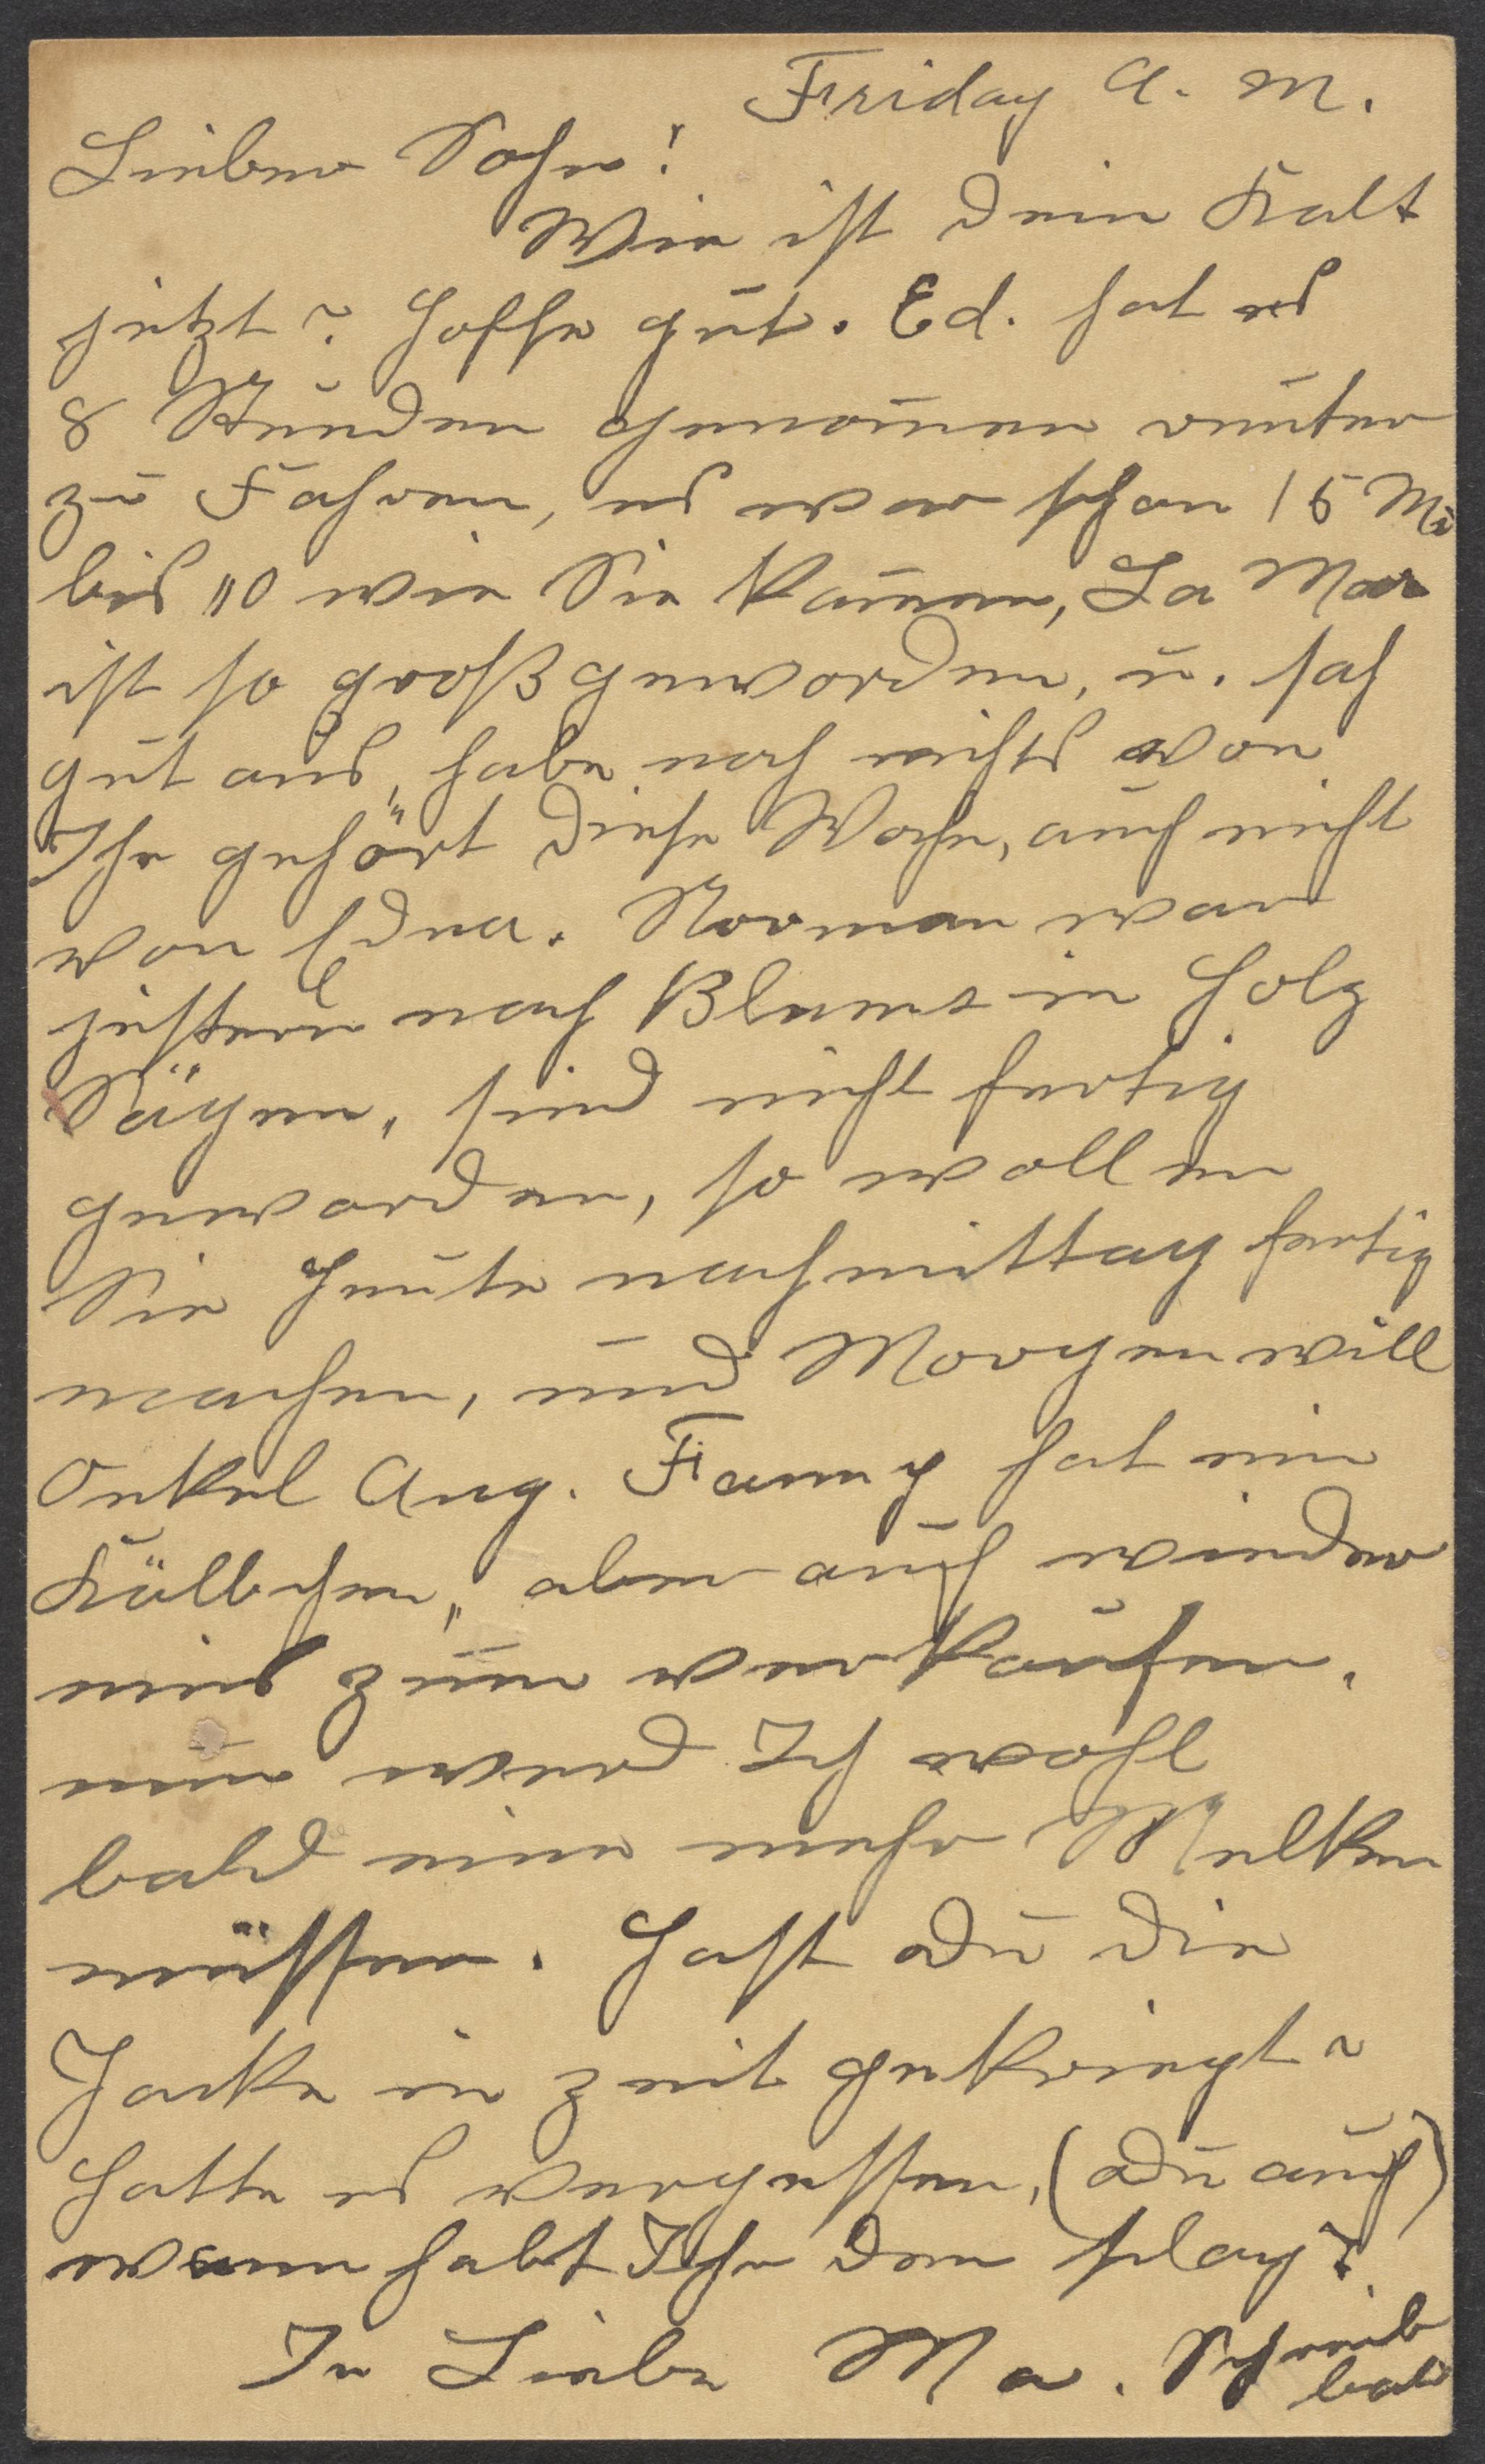 Friday A. M.
Lieber Sohn!
Wie ist dein Kalt
jetzt? Hoffe gut. Ed. hat es
8 Stunden genom̄en runter
zu Fahren, es war schon 15 Mi
bis 10 wie Sie kam̄en, La Mar
ist so groß geworden, u. sah
gut aus, habe noch nichts von
Ihr gehört diese Woche, auch nicht
von Edna. Norman war
jestern nach Blumes in Holz
Sägen, sind nicht fertig
geworden, so wollen
Sie Heute nachmittag fertig
machen, und Morgen will
Onkel Aug. Fanny hat ein
Kälbchen, aber auch wieder
eins zum verkaufen.
nun werd Ich wohl
bald eine mehr Melken
müssen. Hast du die
Jacke in zeit gekriegt?
Hatte es vergessen, (du auch)
wann habt Ihr den play?
In Liebe Ma. Schreib
bald